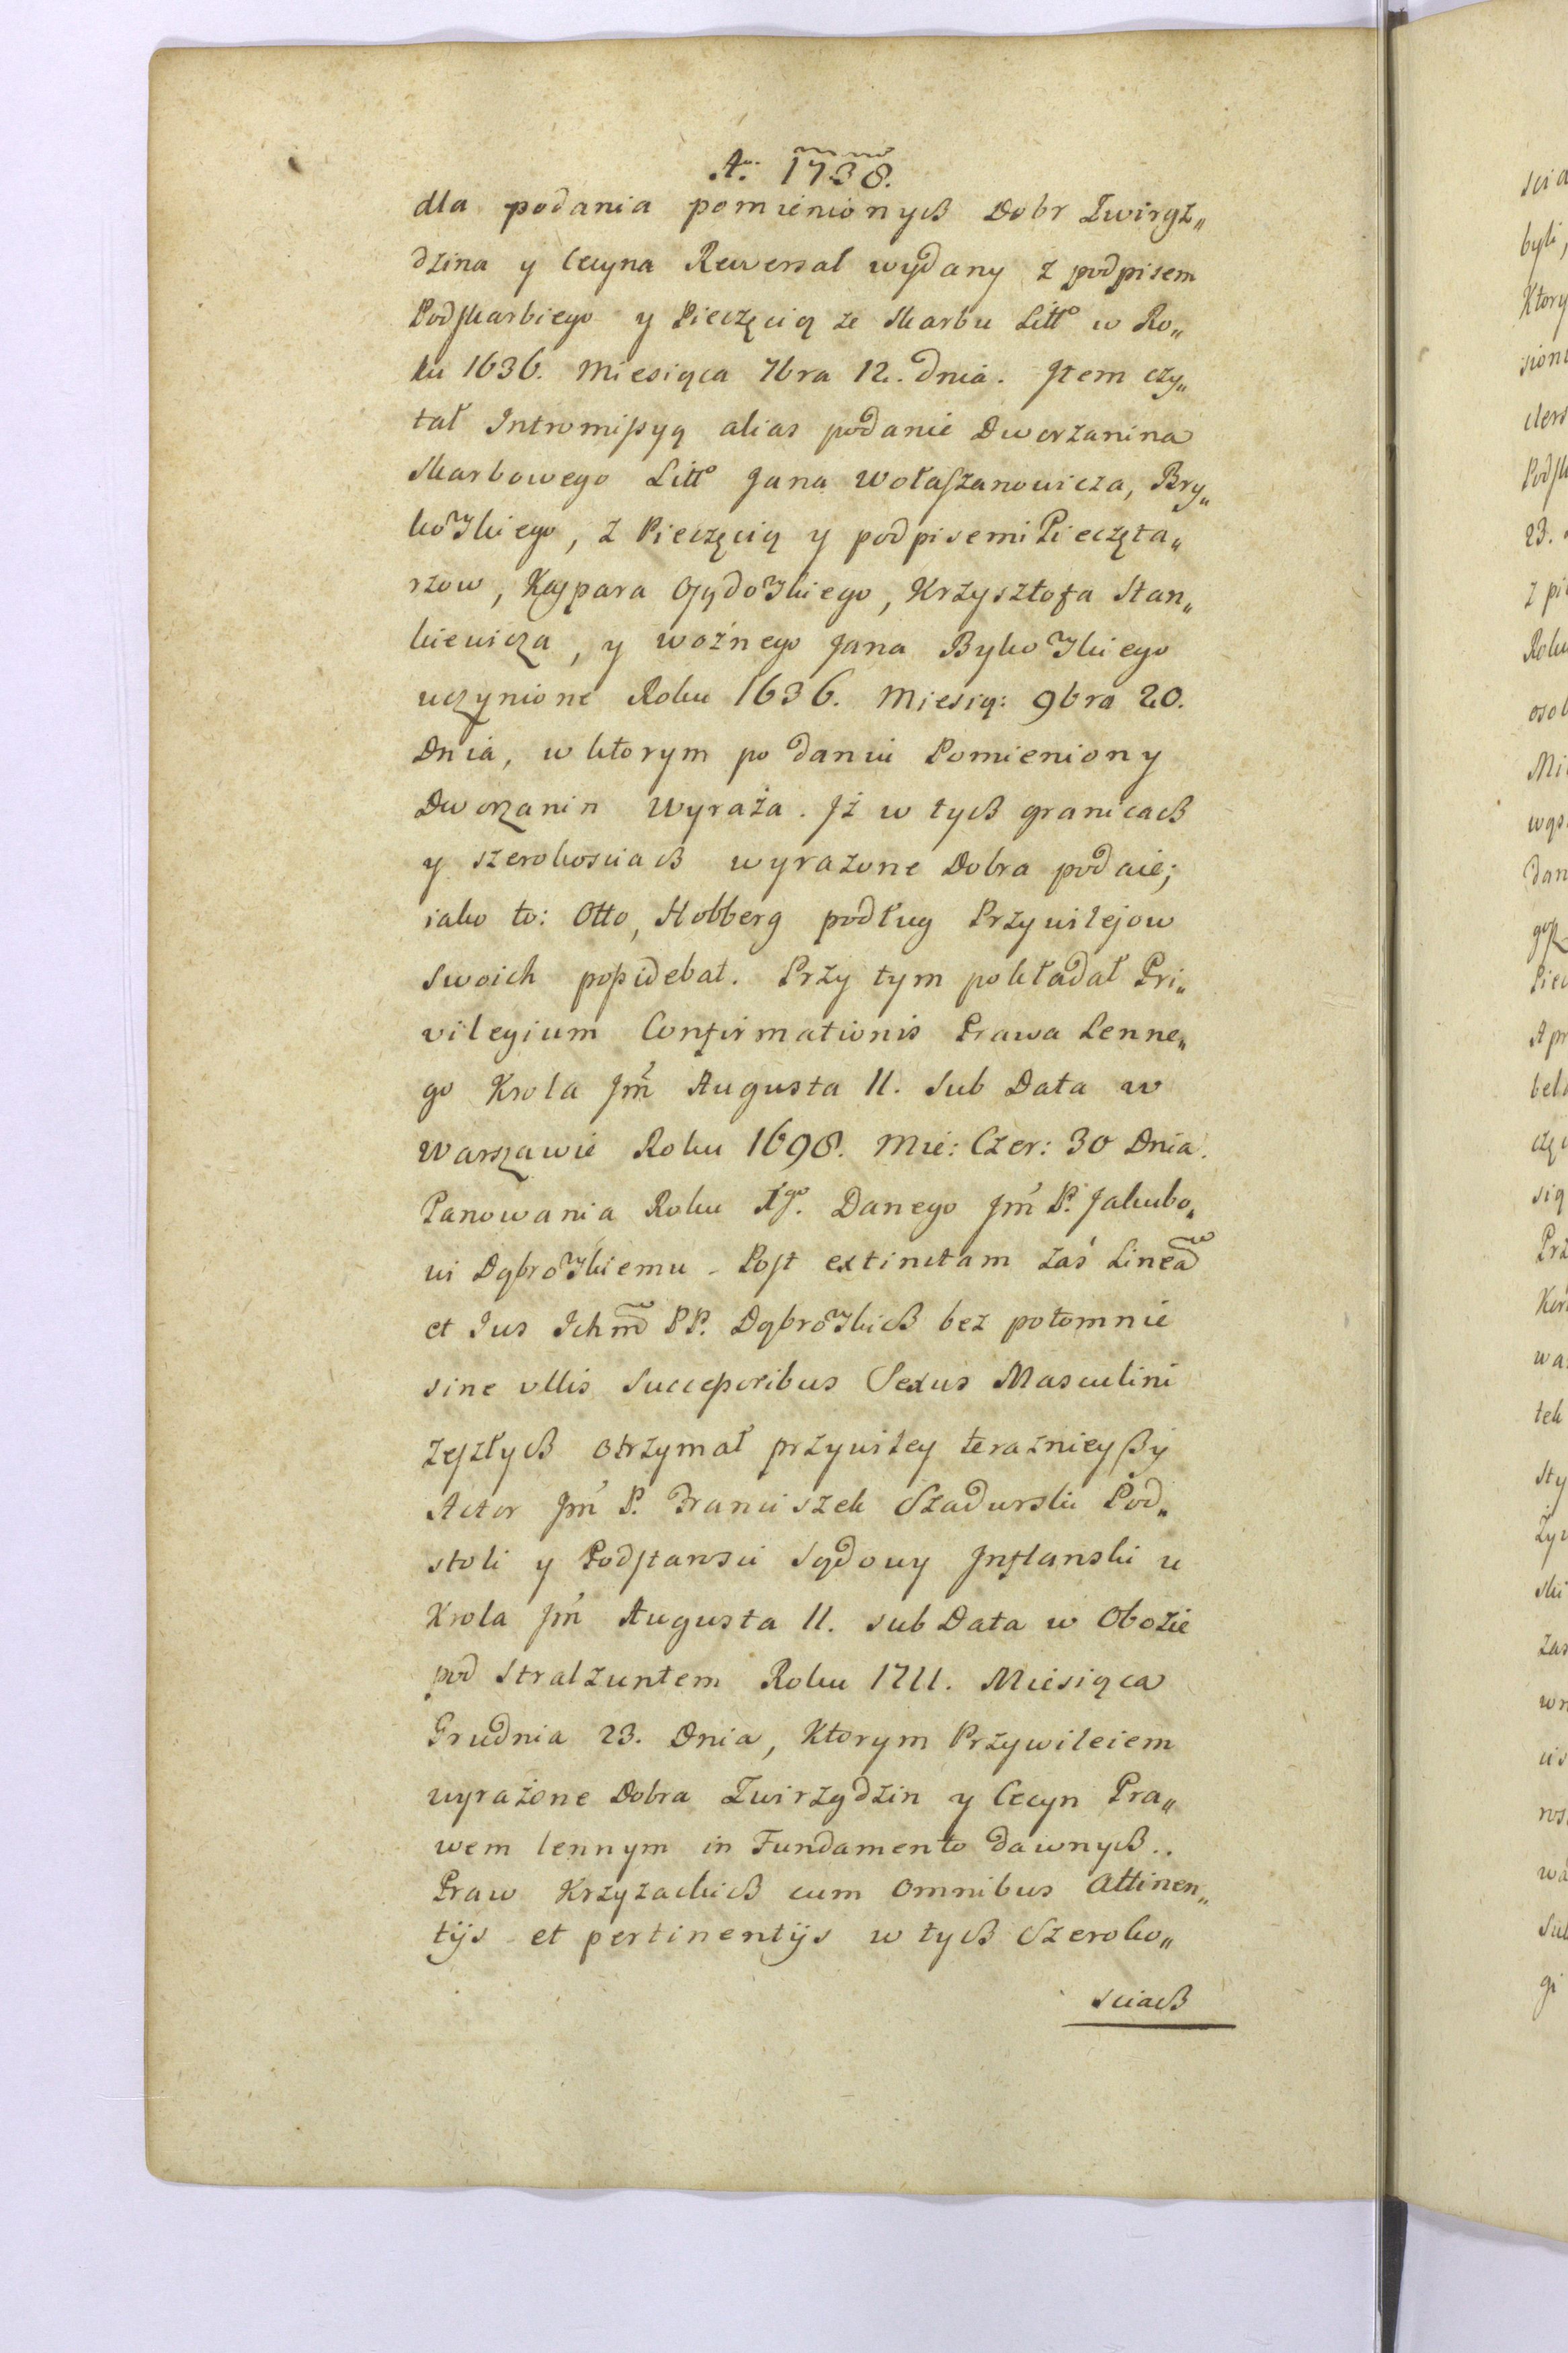 Ao. 1738.
dla podania pomienionych Dobr Zwirgz„
dzina y Cecyna Rewersał wydany z podpisem
Podskarbiego y Pieczęcią ze Skarbu Litto w Ro„
ku 1636. Miesiąca 7bra 12. Dnia. Item czy„
tał Intromissyą alias podanie Dworzanina
Skarbowego Litto Jana Wołaszanowicza, Bry„
kowskiego, z Pieczęcią y podpisemi Pieczęta„
rzow, Kaspara Ogydowskiego, Krzysztofa Stan„
kiewicza, y woźnego Jana Bykowskiego
uczynione Roku 1636. Miesią: 9bra 20.
Dnia, w ktorym podaniu Pomieniony
Dworzanin Wyraża. Iż w tych granicach
y szerokosciach wyrazone Dobra podaie;
iako to: Otto, Hobberg podług Przywilejow
swoich possidebat. Przy tym pokładał Pri„
vilegium Confirmationis Prawa Lenne„
go Krola Jm̃ Augusta II. Sub Data w
Warszawie Roku 1698. Mie: Czer: 30 Dnia.
Panowania Roku 1go. Danego Jm̃ P. Jakubo„
wi Dąbrowskiemu. Post extinctam zaś Lineã
et Ius Ichm̃ PP. Dąbrowskich bez potomnie
sine ullis Successoribus Sexus Masculini
zeszłych otrzymał przywiley teraznieyszy
Actor Jm̃ P. Franciszek Szadurski Pod„
stoli y Podstarosci Sądowy Inflanski u
Krola Jm̃ Augusta II. sub Data w Obozie
pod Stralzuntem Roku 1711. Miesiąca
Grudnia 23. Dnia, Ktorym Przywileiem
wyrażone Dobra Zwirzgdzin y Cecyn Pra„
wem lennym in Fundamento dawnych..
Praw Krzyzackich cum omnibus Attinen„
tijs et pertinentijs w tych Szeroko„
sciach